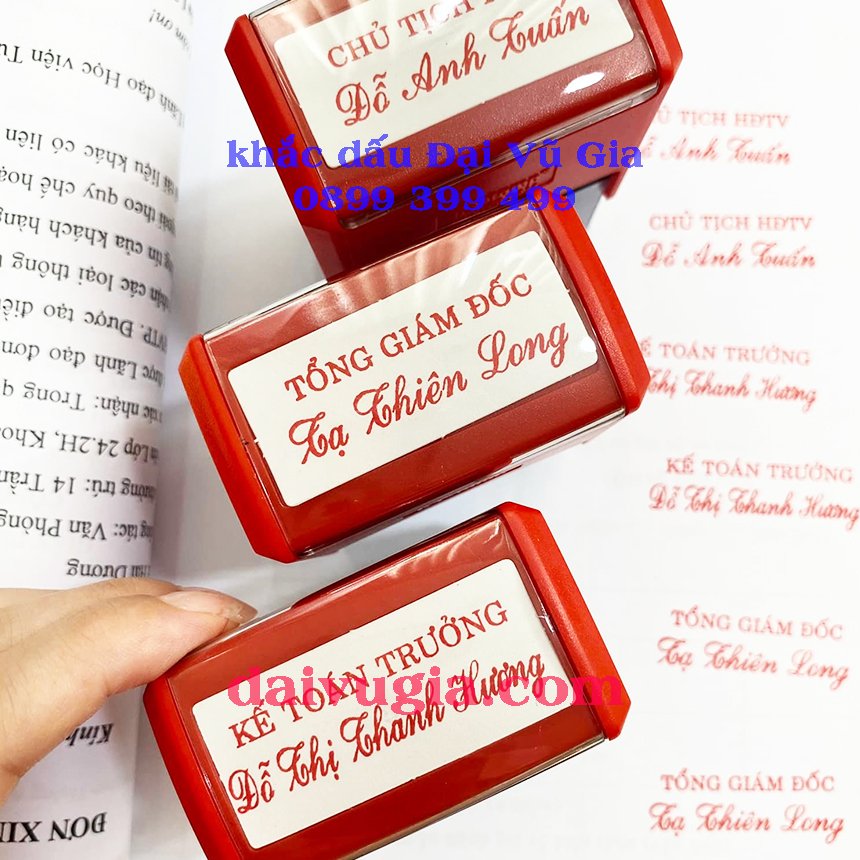 CHỦ TỊCH
Đỗ Anh Tuấn
khắc dấu Đại Vũ Gia
0899 399 499
TỔNG GIÁM ĐỐC
Tạ Thiên Long
KẾ TOÁN TRƯỞNG
Đỗ Thị Thanh Hương
daivugia.com
CHỦ TỊCH HĐTV
Đỗ Anh Tuấn
CHỦ TỊCH HĐTV
Đỗ Anh Tuấn
KẾ TOÁN TRƯỞNG
Thị Thanh Hương
KẾ TOÁN TRƯỞNG
Đỗ Thị Thanh Hương
TỔNG GIÁM ĐỐC
Tạ Thiên Long
TỔNG GIÁM ĐỐC
Tạ Thiên Long
ĐƠN XIN
Kính
Hải Dương
tác: Văn Phòng
trú: 14 Trần
Lớp 24.2H, Kho
xác nhận: Trong q
được Lãnh đạo đơn
Được tạo điều
nhận các loại thông
tin của khách hàng
ngoài theo quy chế hoạ
tài liệu khác có liên
Lãnh đạo Học viện Tư
ơn!